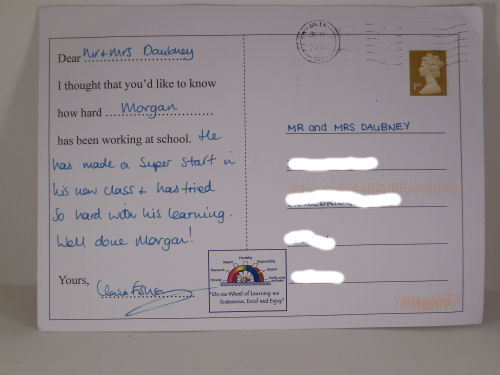 Dear Mr + Mrs Daubney
I thought that you'd like to know
how hard Morgan
has been working at school. He
has made a super start in
his new class + has tried
so hard with his learning.
Well done Morgan!
Yours, Claire
MR and MRS DAUBNEY
1st
Friendship
Respect
Responsibility
"On our Wheel of Learning we
Endeavour, Excel and Enjoy"